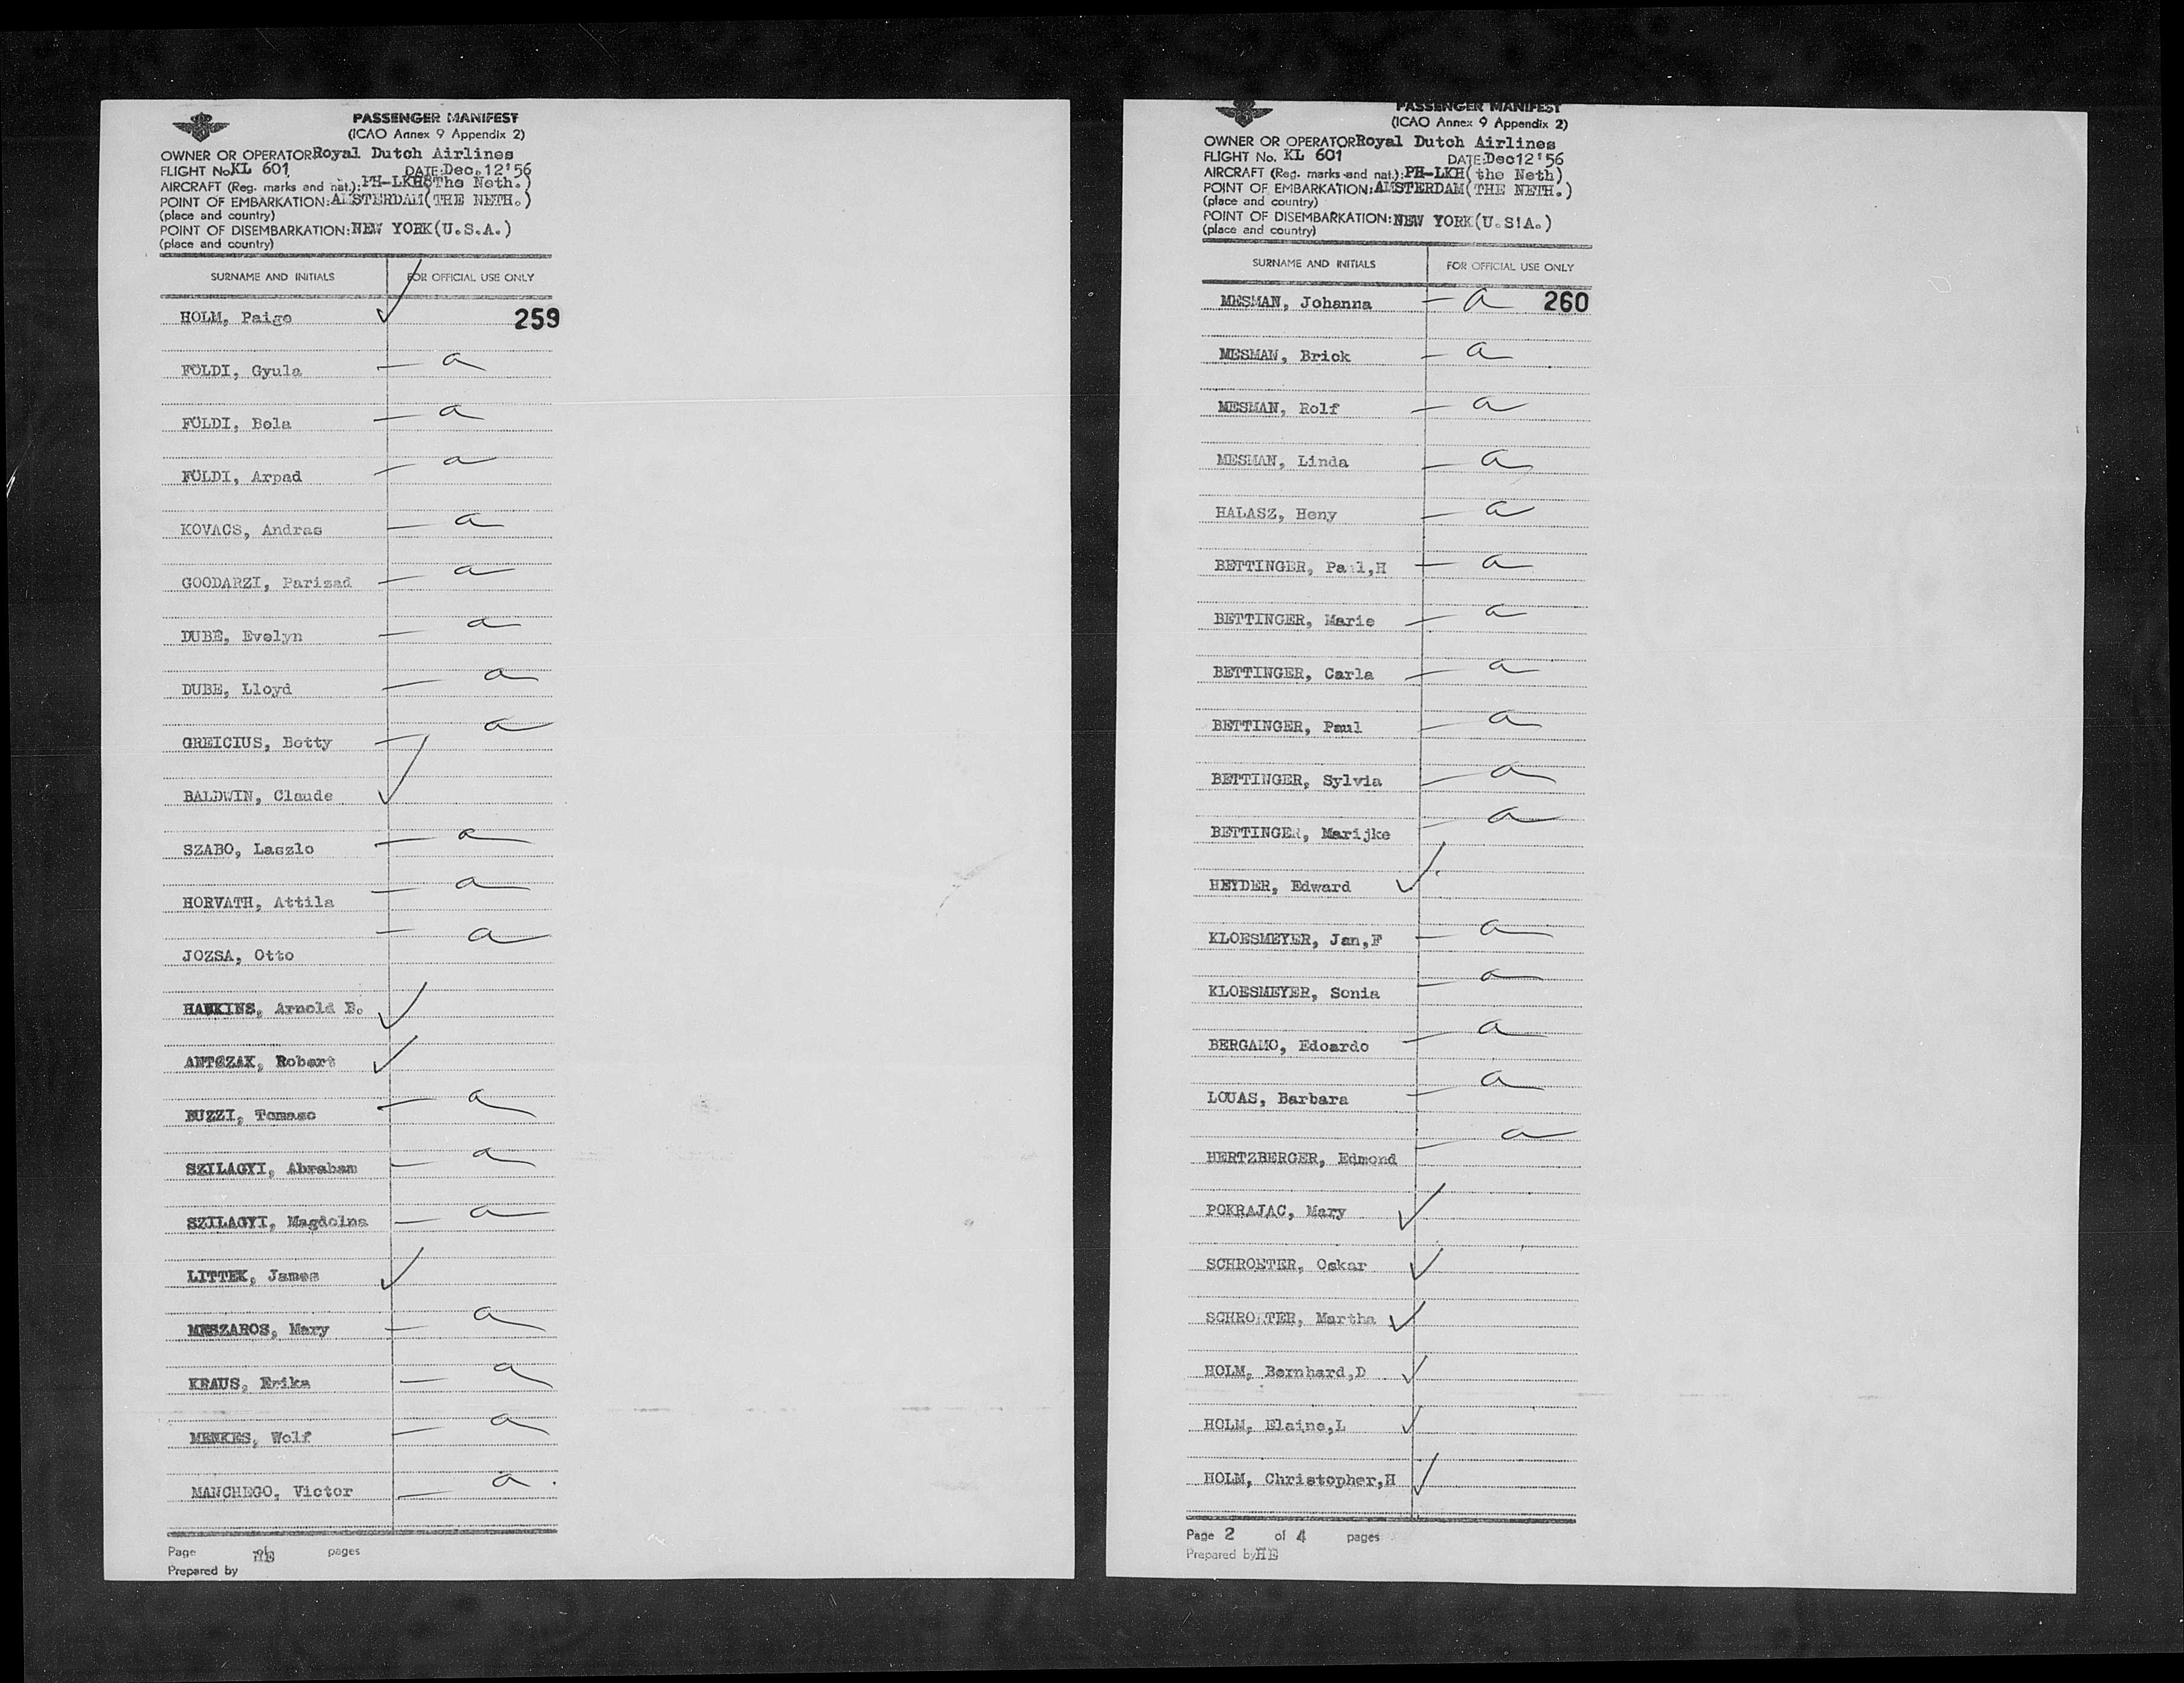 PASSENGER MANIFEST
(ICAO Annex 9 Appendix 2)
OWNER OR OPERATOR Royal Dutch Airlines
FLIGHT No. KL 601 DATE: Dec. 12'56
AIRCRAFT (Reg. marks and nat.): PH-LKH(The Neth.)
POINT OF EMBARKATION: AMSTERDAM(THE NETH.)
(place and country)
POINT OF DISEMBARKATION: NEW YORK(U.S.A.)
(place and country)
SURNAME AND INITIALS FOR OFFICIAL USE ONLY
HOLM, Paige ✓ 259
FÖLDI, Gyula — a
FÖLDI, Bela — a
FÖLDI, Arpad — a
KOVACS, Andras — a
GOODARZI, Parizad — a
DUBE, Evelyn — a
DUBE, Lloyd — a
GREICIUS, Betty — a
BALDWIN, Claude ✓
SZABO, Laszlo — a
HORVATH, Attila — a
JOZSA, Otto — a
HANKINS, Arnold B. ✓
ANTCZAK, Robert ✓
BUZZI, Tomaso — a
SZILAGYI, Abraham — a
SZILAGYI, Magdolna — a
LITTEK, James ✓
MESZAROS, Mary — a
KRAUS, Erika — a
MENKES, Wolf — a
MANCHEGO, Victor — a
Page of pages
HE
Prepared by
PASSENGER MANIFEST
(ICAO Annex 9 Appendix 2)
OWNER OR OPERATOR Royal Dutch Airlines
FLIGHT No. KL 601 DATE: Dec12'56
AIRCRAFT (Reg. marks and nat.): PH-LKH(the Neth)
POINT OF EMBARKATION: AMSTERDAM(THE NETH.)
(place and country)
POINT OF DISEMBARKATION: NEW YORK(U.S!A.)
(place and country)
SURNAME AND INITIALS FOR OFFICIAL USE ONLY
MESMAN, Johanna — a 260
MESMAN, Brick — a
MESMAN, Rolf — a
MESMAN, Linda — a
HALASZ, Heny — a
BETTINGER, Paul,H — a
BETTINGER, Marie — a
BETTINGER, Carla — a
BETTINGER, Paul — a
BETTINGER, Sylvia — a
BETTINGER, Marijke — a
HEYDER, Edward ✓
KLOESMEYER, Jan,F — a
KLOESMEYER, Sonia — a
BERGAMO, Edoardo — a
LOUAS, Barbara — a
HERTZBERGER, Edmond — a
POKRAJAC, Mary ✓
SCHROETER, Oskar ✓
SCHROETER, Martha ✓
HOLM, Bernhard,D ✓
HOLM, Elaine,L ✓
HOLM, Christopher,H ✓
Page 2 of 4 pages
Prepared by HE